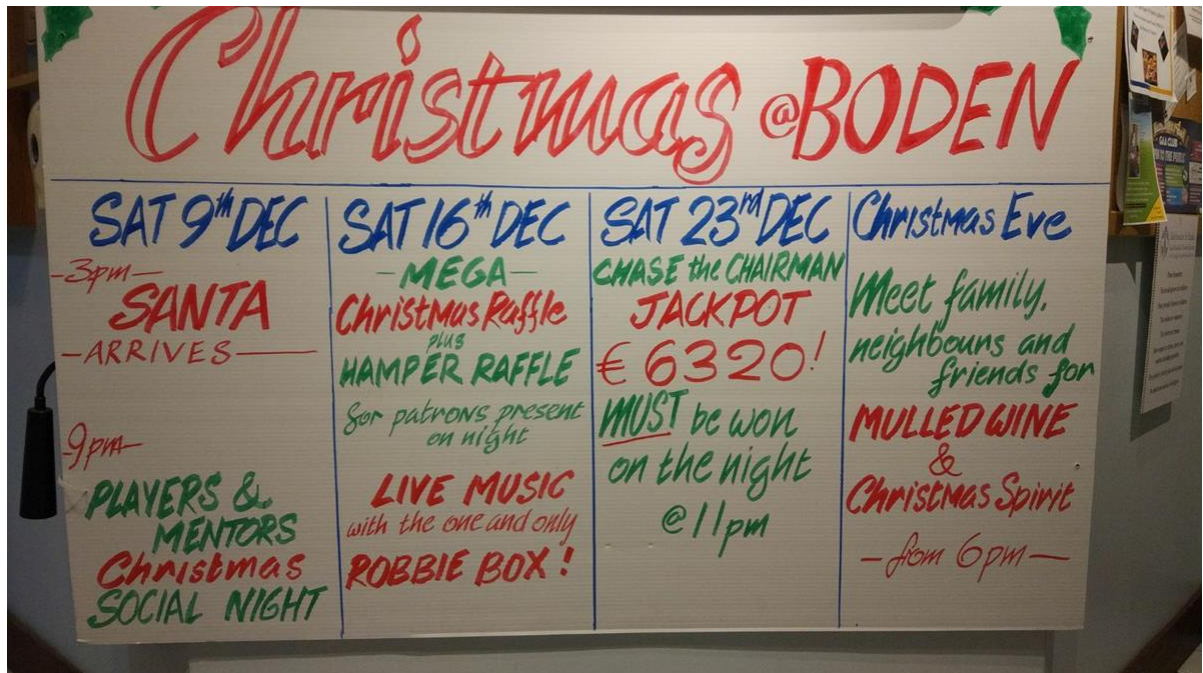 Christmas @BODEN
SAT 9th DEC
-3pm-
SANTA
-ARRIVES-
9pm-
PLAYERS &
MENTORS
Christmas
SOCIAL NIGHT
SAT 16th DEC
-MEGA-
Christmas Raffle
plus
HAMPER RAFFLE
for patrons present
on night
LIVE MUSIC
with the one and only
ROBBIE BOX!
SAT 23rd DEC
CHASE the CHAIRMAN
JACKPOT
€6320!
MUST be won
on the night
@11pm
Christmas Eve
Meet family,
neighbours and
friends for
MULLED WINE
&
Christmas Spirit
-from 6pm-
GAA CLUB